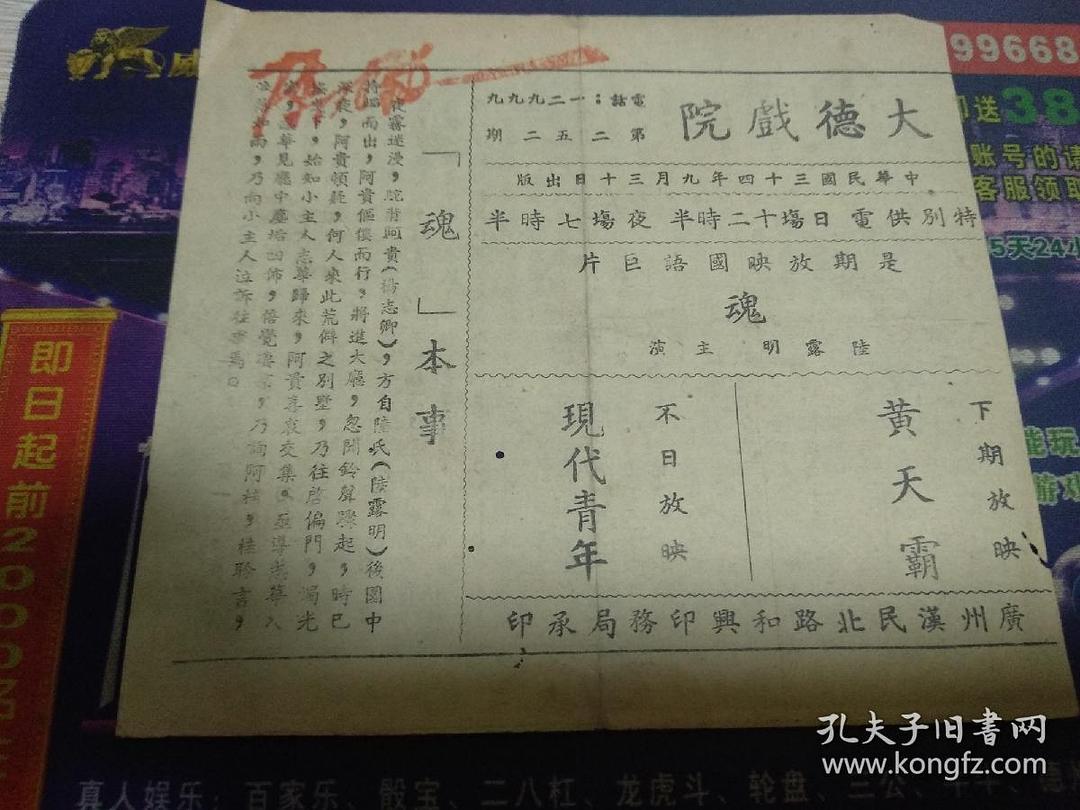 大德戲院
電話：一二九九九
第二五二期
中華民國三十四年九月三十日出版
特別供電 日塲十二時半 夜塲七時半
是期放映國語巨片
魂
陸露明 主演
下期放映
黃天霸
不日放映
現代青年
廣州漢民北路和興印務局承印
「魂」本事
夜霧迷漫，院
貴（楊志卿），方自陸氏（陸露明）後園中
而出，阿貴傴僂而行，將進大廳，忽聞鈴聲驟起，時已
，阿貴頓疑，何人來此荒僻之別墅，乃往啓偏門，燭光
下，始知小主人志華歸來，阿貴喜哀交集，亟導志華入
，志華見廳中塵垢四佈，倍覺淒，乃詢阿桂，桂聆言，
，乃向小主人泣訴往事焉。
即日起前2000名
99668
即送38
账号的请
客服领取
5天24小
能玩
游戏
威
真人娱乐：百家乐、骰宝、二八杠、龙虎斗、轮盘、三公、牛牛、德
孔夫子旧书网
www.kongfz.com